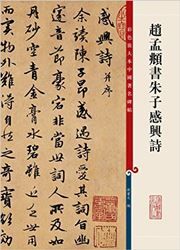 彩色放大本中國著名碑帖
趙孟頫書朱子感興詩
感興詩 并序
余讀陳子昂感遇詩愛其詞
音節豪宕非當世詞人所及如
丹砂空青金膏水碧雖近乏世
而實物外難得自然